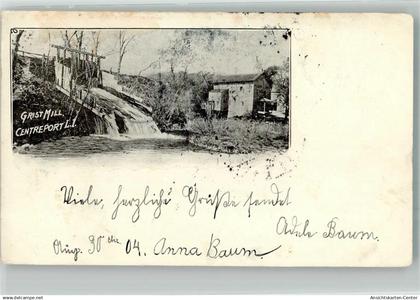 GRIST MILL,
CENTREPORT L.I.
Viele, herzliche Grüße sendet
Adele Baum.
Aug. 30 04. Anna Baum
Ansichtskarten-Center